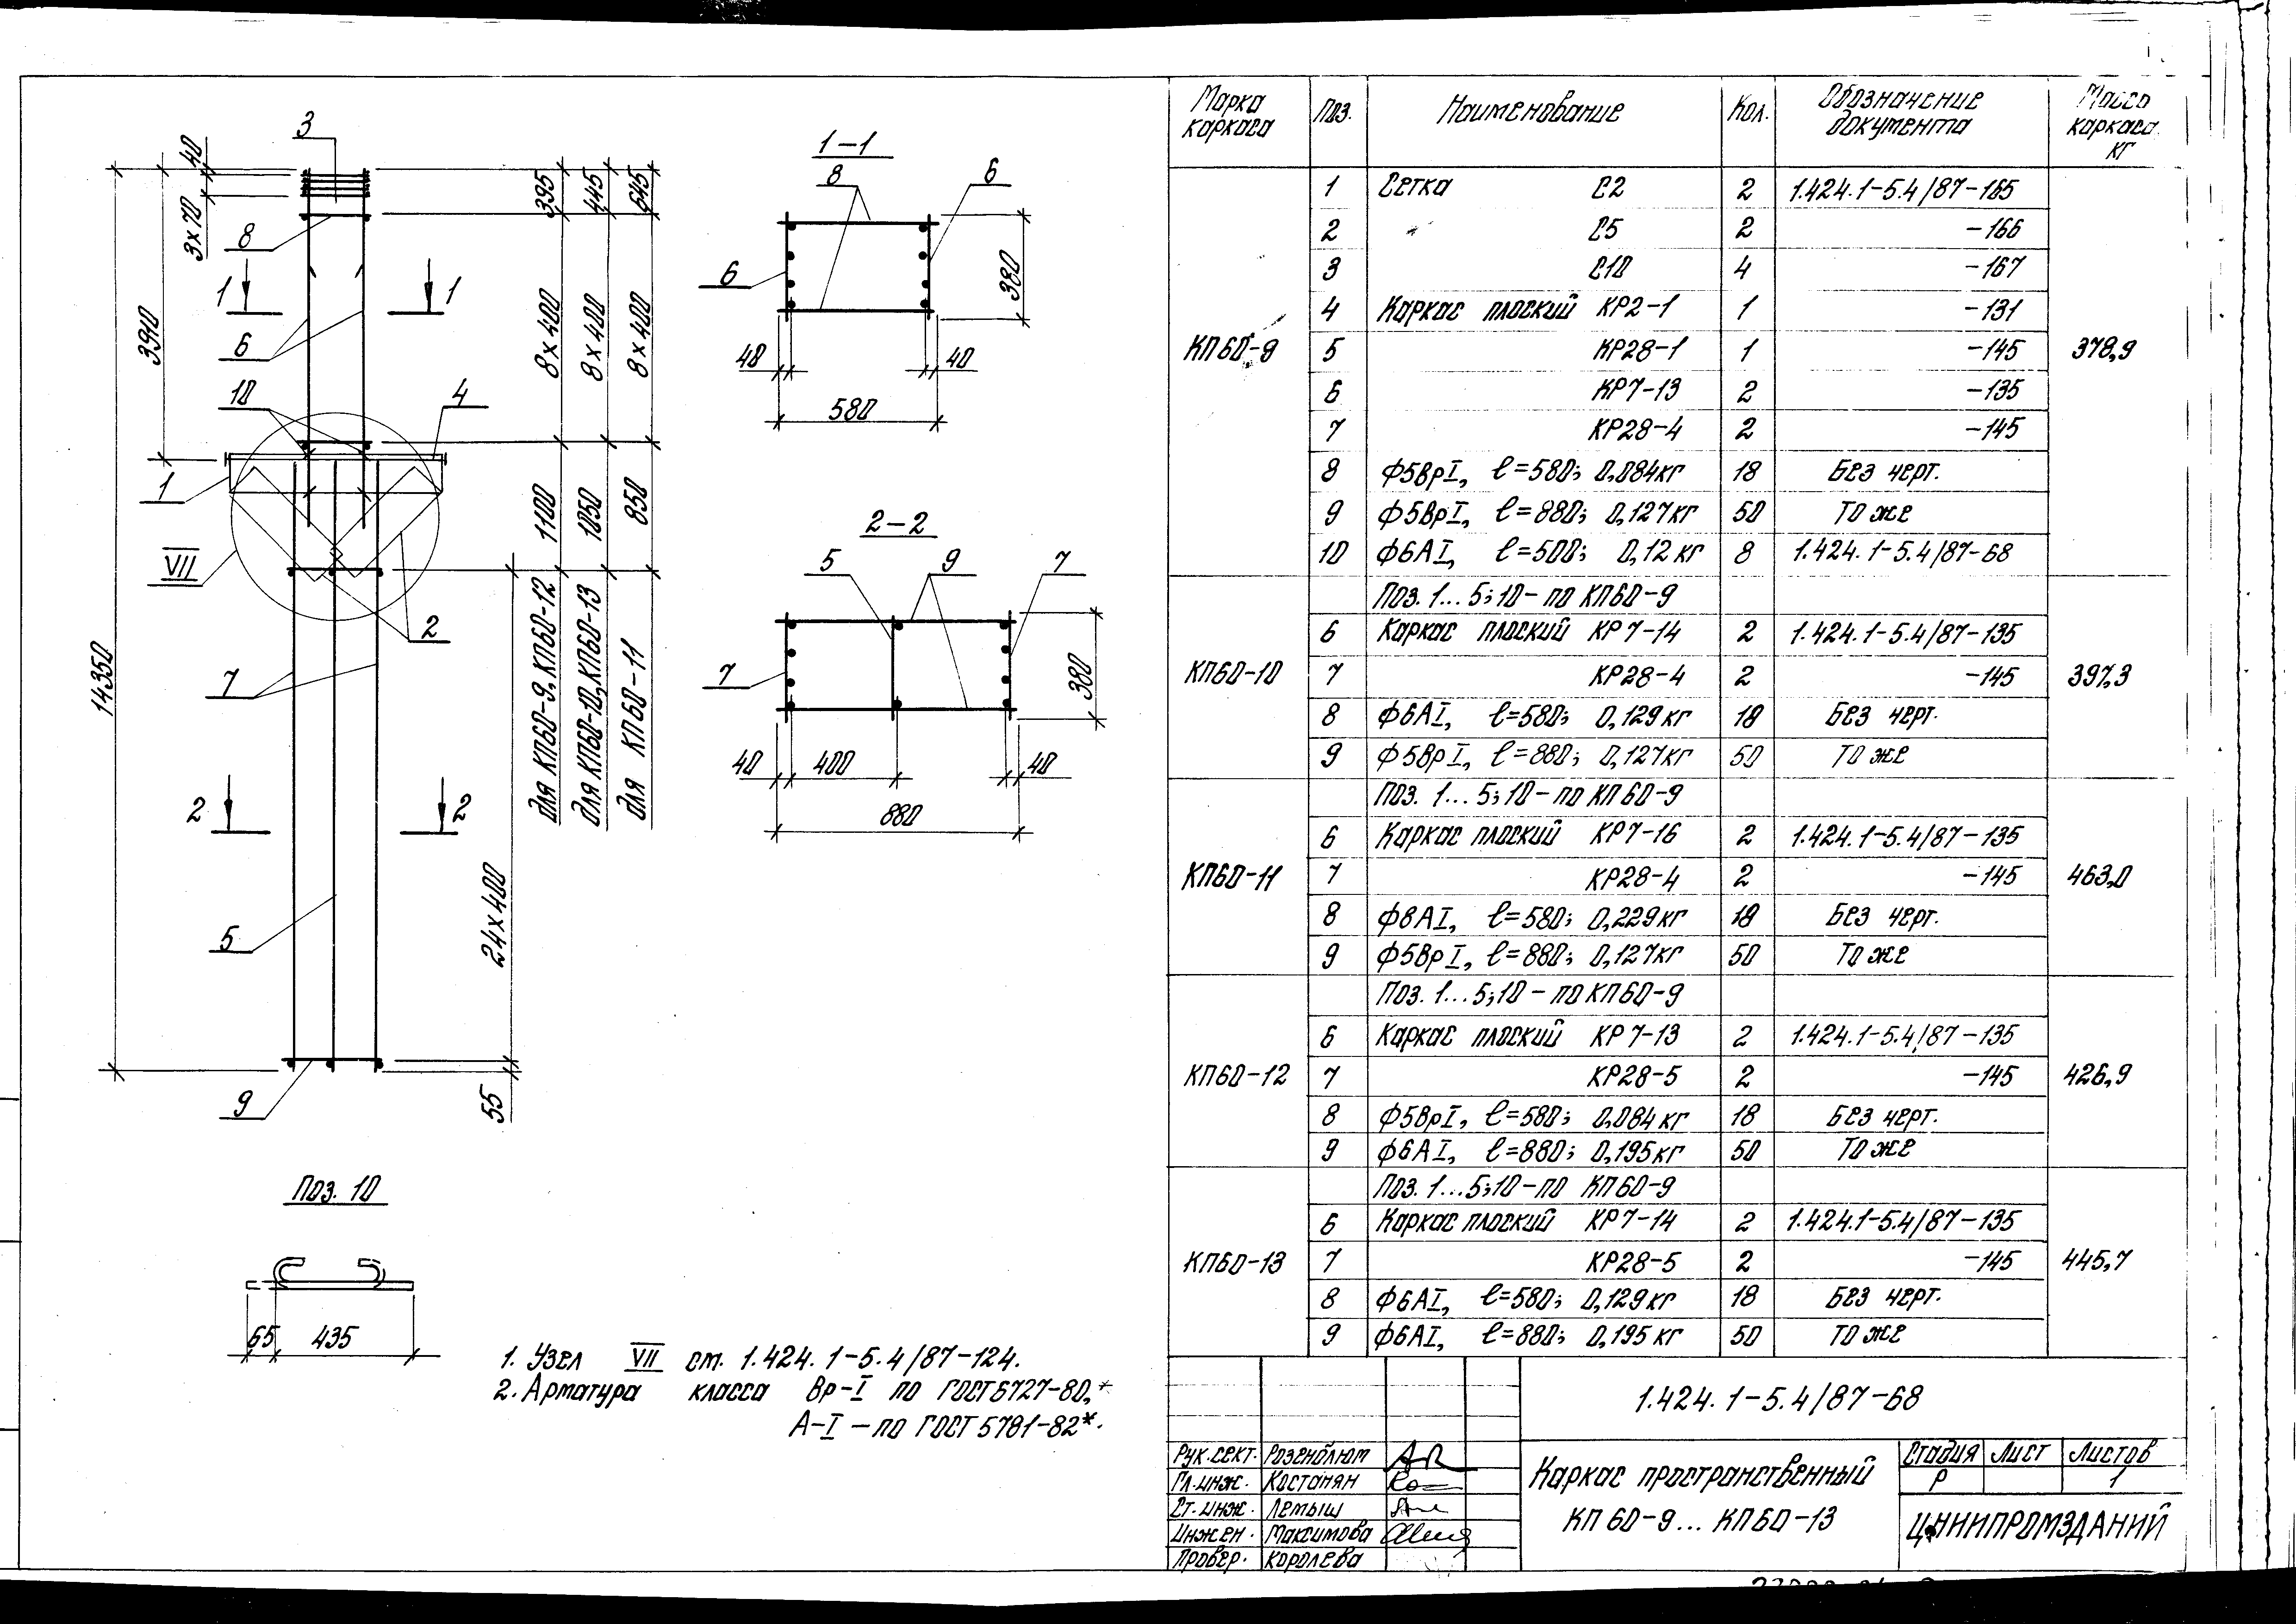 3
40
3×70
8
1
1
3910
6
10
4
1
VII
2
14350
7
2
2
5
9
395
445
645
8×400
8×400
8×400
1100
1050
850
для КП60-9, КП60-12
для КП60-10, КП60-13
для КП60-11
24×400
55
1-1
8
6
6
380
40
40
580
2-2
5
9
7
7
380
40
400
40
880
Поз. 10
65
435
1. Узел VII см. 1.424.1-5.4/87-124.
2. Арматура класса Вр-I по ГОСТ 6727-80,*
А-I – по ГОСТ 5781-82*.
Марка каркаса Поз. Наименование Кол. Обозначение документа Масса каркаса кг
КП60-9 378,9
1 Сетка С2 2 1.424.1-5.4/87-165
2 " С5 2 -166
3 С10 4 -167
4 Каркас плоский КР2-1 1 -131
5 КР28-1 1 -145
6 КР7-13 2 -135
7 КР28-4 2 -145
8 ф5ВрI, ℓ=580; 0,084кг 18 Без черт.
9 ф5ВрI, ℓ=880; 0,127кг 50 То же
10 ф6АI, ℓ=500; 0,12кг 8 1.424.1-5.4/87-68
Поз. 1...5;10-по КП60-9
КП60-10 397,3
6 Каркас плоский КР7-14 2 1.424.1-5.4/87-135
7 КР28-4 2 -145
8 ф6АI, ℓ=580; 0,129кг 18 Без черт.
9 ф5ВрI, ℓ=880; 0,127кг 50 То же
Поз. 1...5;10-по КП60-9
КП60-11 463,0
6 Каркас плоский КР7-16 2 1.424.1-5.4/87-135
7 КР28-4 2 -145
8 ф8АI, ℓ=580; 0,229кг 18 Без черт.
9 ф5ВрI, ℓ=880; 0,127кг 50 То же
Поз. 1...5;10-по КП60-9
КП60-12 426,9
6 Каркас плоский КР7-13 2 1.424.1-5.4/87-135
7 КР28-5 2 -145
8 ф5ВрI, ℓ=580; 0,084кг 18 Без черт.
9 ф6АI, ℓ=880; 0,195кг 50 То же
Поз. 1...5;10-по КП60-9
КП60-13 445,7
6 Каркас плоский КР7-14 2 1.424.1-5.4/87-135
7 КР28-5 2 -145
8 ф6АI, ℓ=580; 0,129кг 18 Без черт.
9 ф6АI, ℓ=880; 0,195кг 50 То же
1.424.1-5.4/87-68
Рук.сект. Розенблюм
Гл.инж. Костанян
Ст.инж. Лемыш
Инжен. Максимова
Провер. Королева
Каркас пространственный
КП60-9...КП60-13
Стадия Лист Листов
Р 1
ЦНИИПРОМЗДАНИЙ